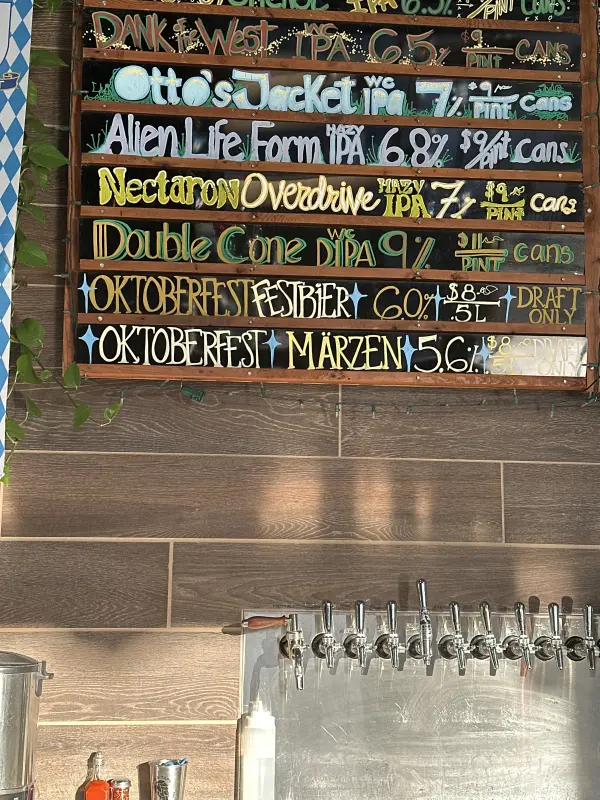 IPA 6.5% PINT CANS
DANK & WEST WC IPA 6.5% $9 PINT CANS
Otto's Jacket WC IPA 7% $9 PINT cans
Alien Life Form HAZY IPA 6.8% $9/pint cans
Nectaron Overdrive HAZY IPA 7% $9 PINT cans
Double Cone WC DIPA 9% $11 PINT cans
OKTOBERFEST FESTBIER 6.0% $8 .5L DRAFT ONLY
OKTOBERFEST MÄRZEN 5.6% $8 .5L DRAFT ONLY